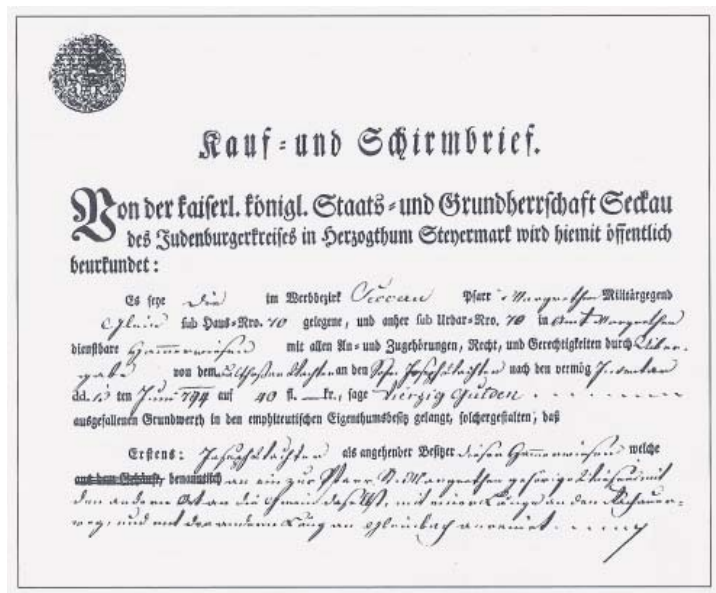 Kauf- und Schirmbrief.
Von der kaiserl. königl. Staats- und Grundherrschaft Seckau
des Judenburgerkreises in Herzogthum Steyermark wird hiemit öffentlich
beurkundet:
Es seye die im Werbbezirk Seccau Pfarr Margrethen Militärgegend
Glein sub Haus-Nro. 10 gelegene, und anher sub Urbar-Nro. 70 in Amt Margrethen
dienstbare Hammerwiesen mit allen An- und Zugehörungen, Recht, und Gerechtigkeiten durch Über-
gabe von dem an den Sohn Joseph nach den vermög Inventar
dd. 13 ten Juny 794 auf 40 fl. — kr., sage Vierzig Gulden
ausgefallenen Grundwerth in den emphiteutischen Eigenthumsbesitz gelangt, solchergestalten, daß
Erstens: Joseph als angehender Besitzer dieser Hammerwiesen welche
aus dem Gehäuft, benanntlich an ein zur Pfarr St. Margrethen gehörige mit
den andern Ort an die Gmein daselbst, mit einer Länge an den
weg, und mit der andern Läng an Gleinbach anrainet